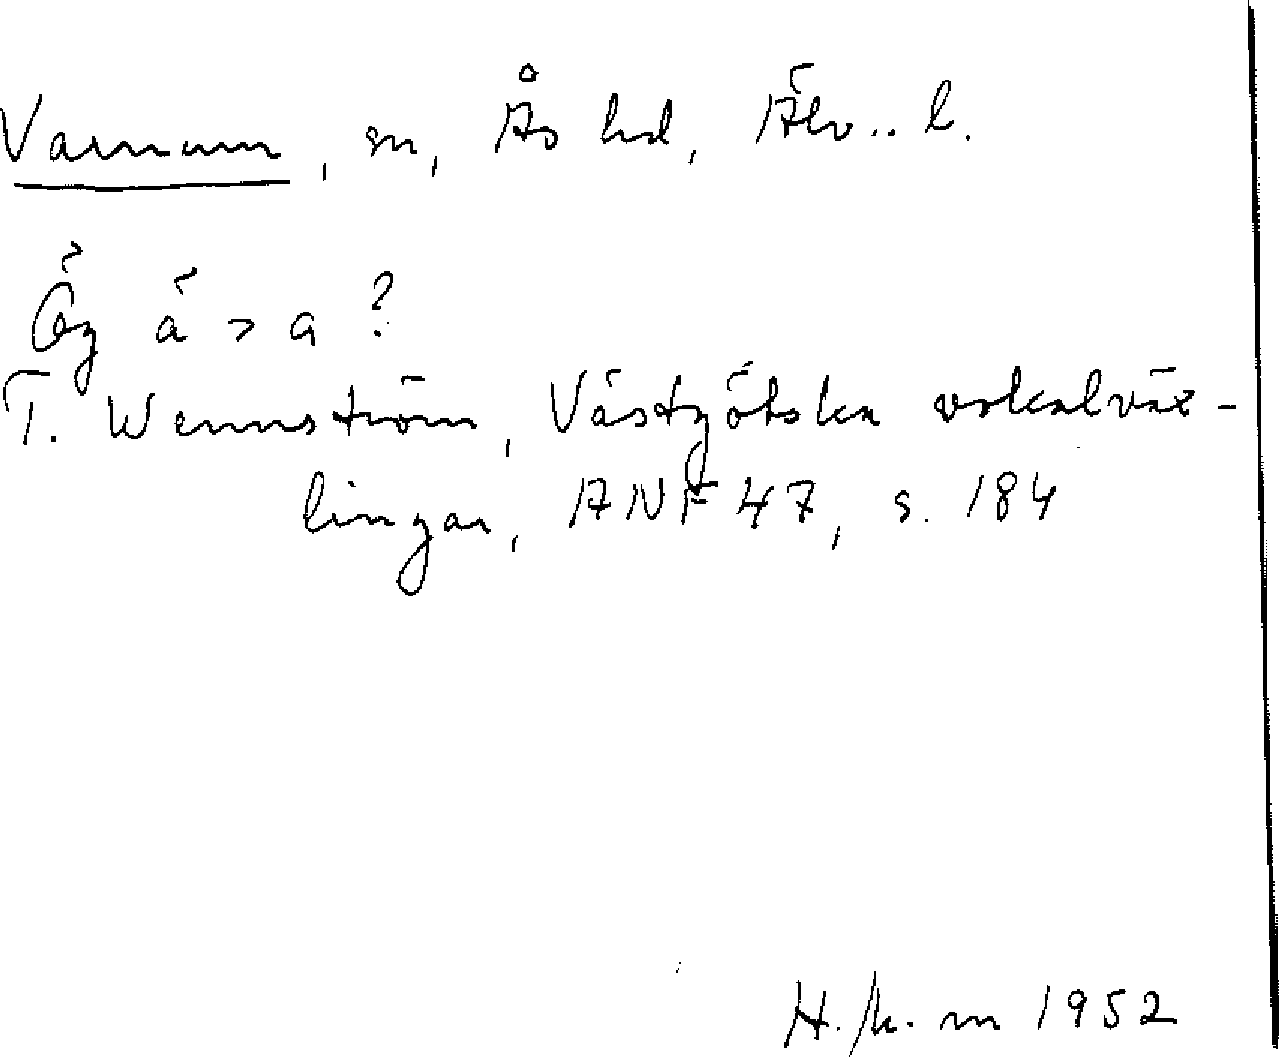 Varnum, sn, Ås hd, Älv.. l.
Ög ä > a ?
T. Wennström, Västgötska vokalväx-
lingar, ANF 47, s. 184
H. 1952